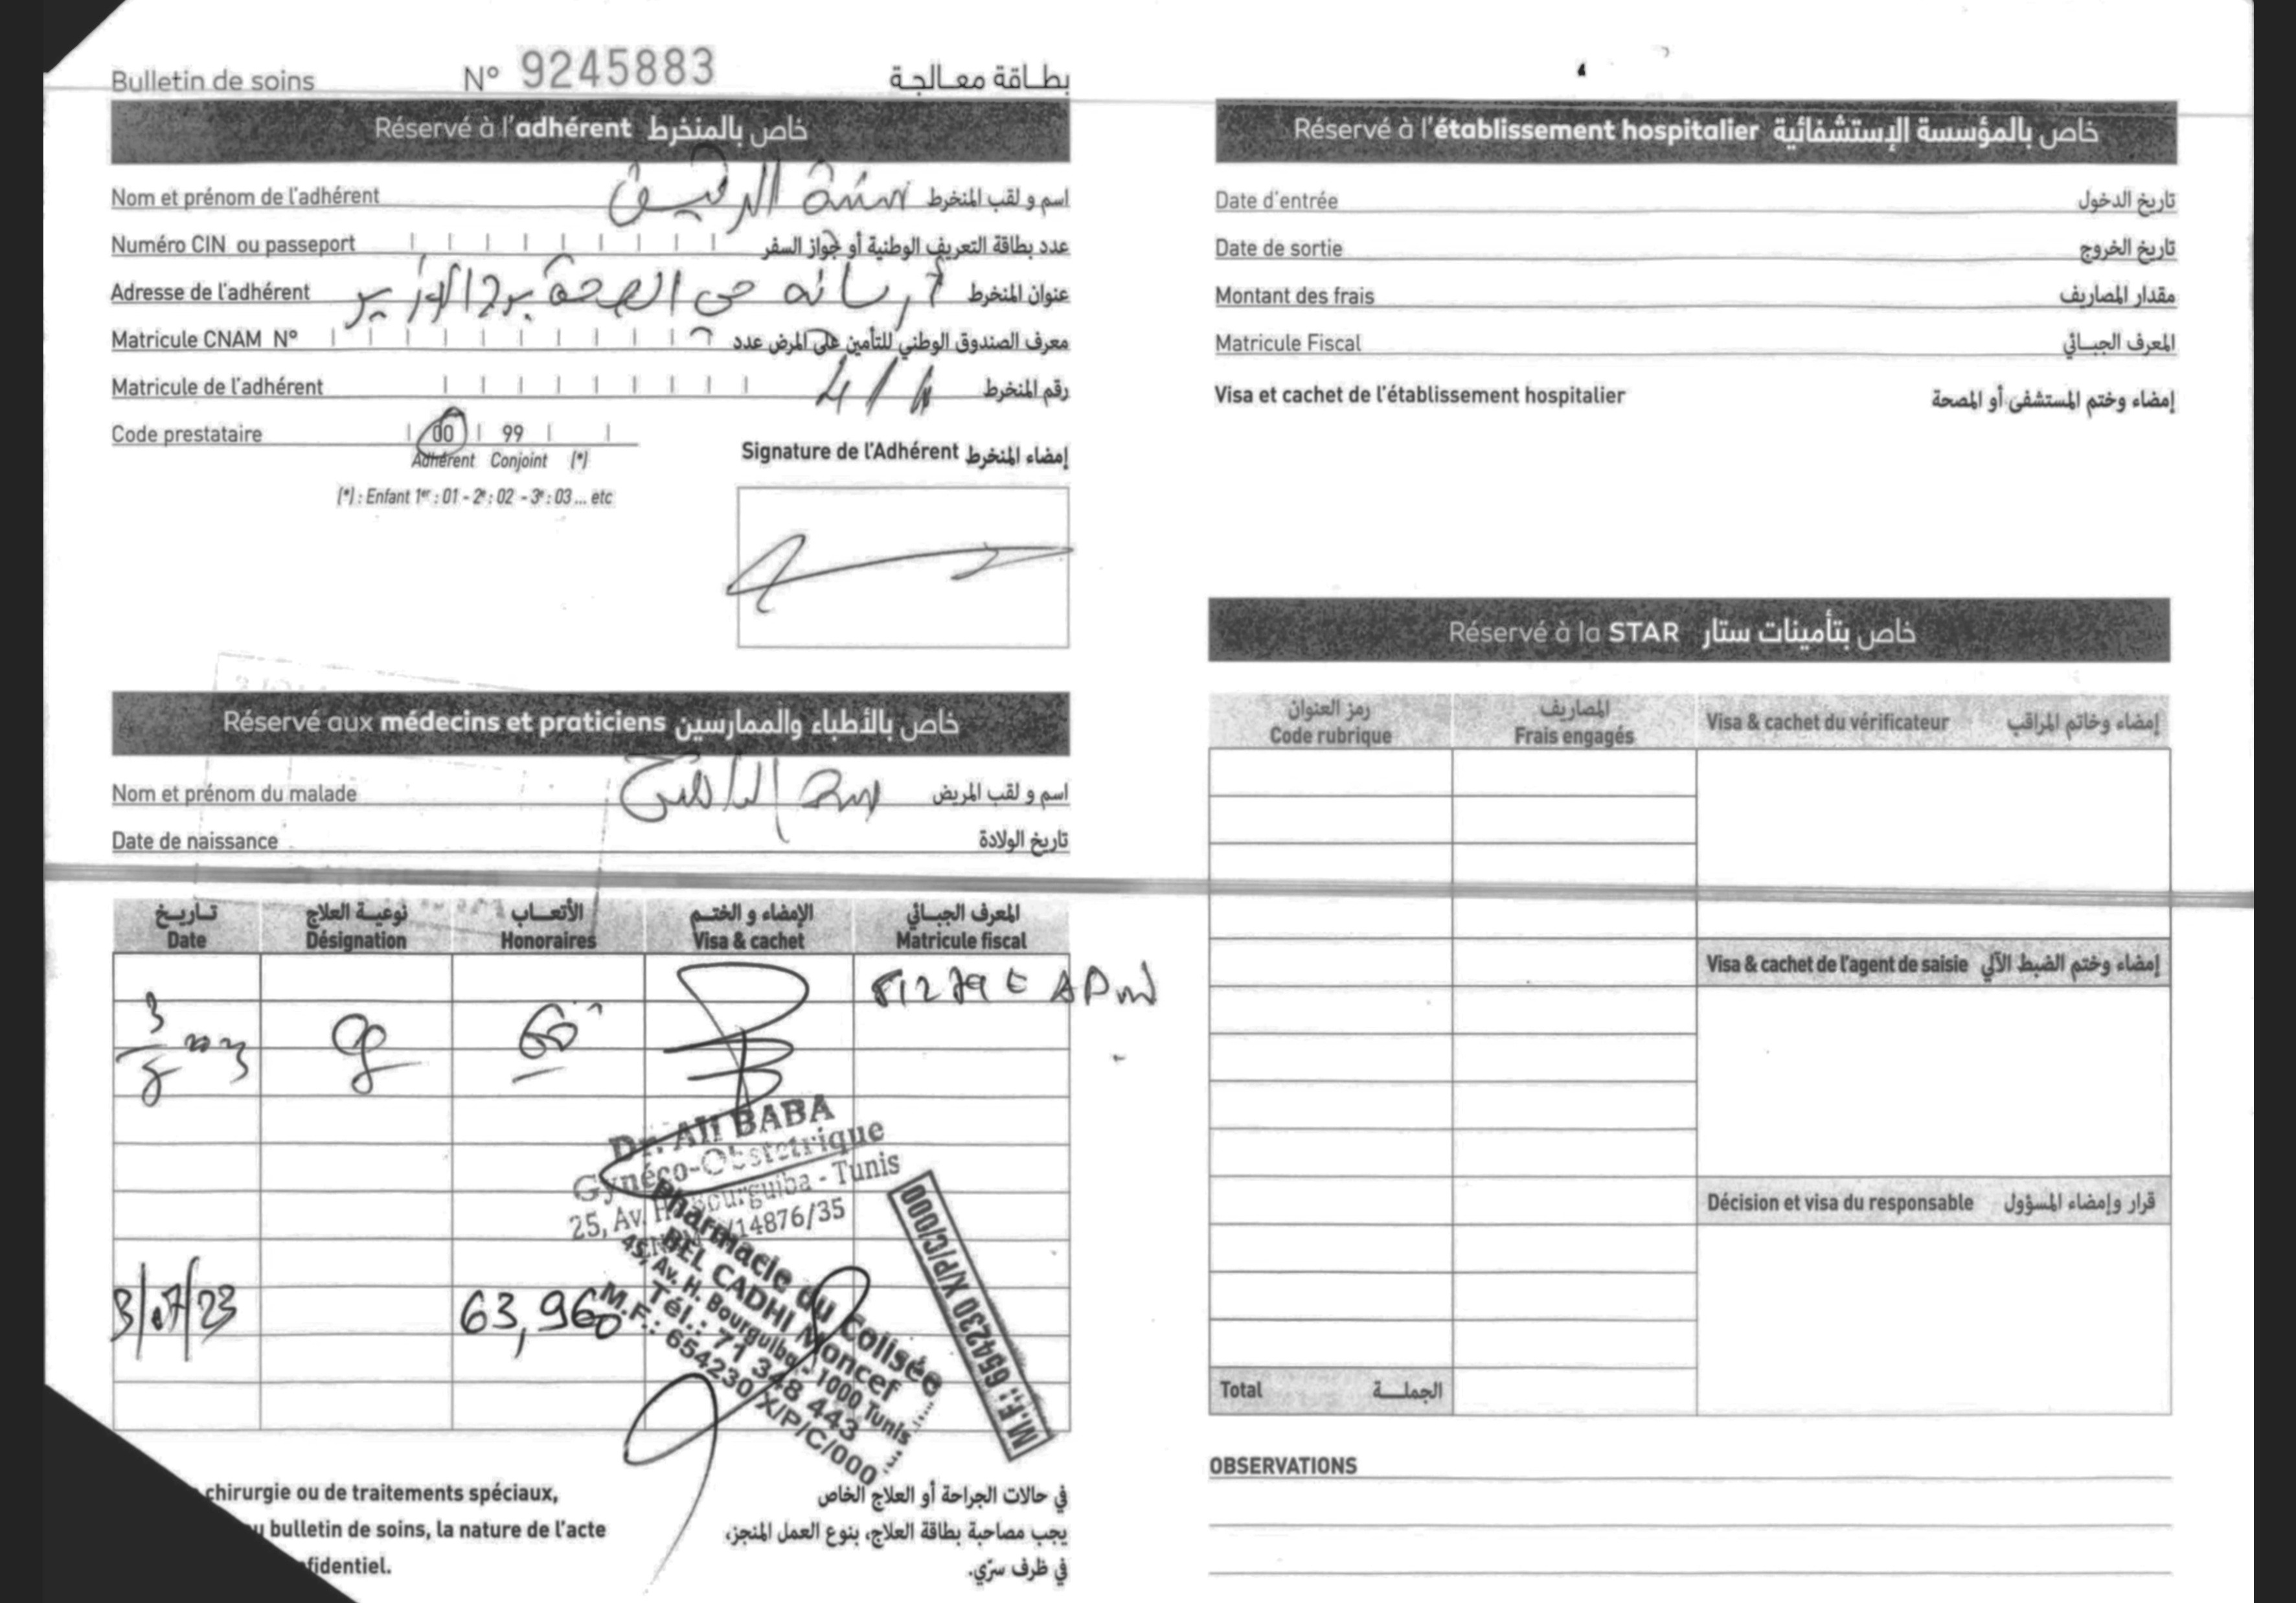 Bulletin de soins N° 9245883 بطاقة معالجة
Réservé à l'adhérent خاص بالمنخرط
Nom et prénom de l'adhérent اسم و لقب المنخرط
Numéro CIN ou passeport عدد بطاقة التعريف الوطنية أو جواز السفر
Adresse de l'adhérent عنوان المنخرط
Matricule CNAM N° معرف الصندوق الوطني للتأمين على المرض عدد
Matricule de l'adhérent رقم المنخرط
Code prestataire 00 99
Adhérent Conjoint (*)
(*) : Enfant 1er : 01 - 2e : 02 - 3e : 03 ... etc
Signature de l'Adhérent إمضاء المنخرط
Réservé aux médecins et praticiens خاص بالأطباء والممارسين
Nom et prénom du malade اسم و لقب المريض
Date de naissance تاريخ الولادة
تاريخ نوعية العلاج الأتعاب الإمضاء و الختم المعرف الجبائي
Date Désignation Honoraires Visa & cachet Matricule fiscal
Dr. Ali BABA
Gynéco-Obstetrique
25, Av. H. Bourguiba - Tunis
/14876/35
3/07/23 63,960
Pharmacie du Colisée
BEL CADHI Moncef
45, Av. H. Bourguiba - 1000 Tunis
Tél.: 71 348 443
M.F.: 654230/X/P/C/000
M.F.: 654230 X/P/C/000
chirurgie ou de traitements spéciaux,
bulletin de soins, la nature de l'acte
في حالات الجراحة أو العلاج الخاص
يجب مصاحبة بطاقة العلاج، بنوع العمل المنجز،
في ظرف سرّي.
Réservé à l'établissement hospitalier خاص بالمؤسسة الإستشفائية
Date d'entrée تاريخ الدخول
Date de sortie تاريخ الخروج
Montant des frais مقدار المصاريف
Matricule Fiscal المعرف الجبائي
Visa et cachet de l'établissement hospitalier إمضاء وختم المستشفى أو المصحة
Réservé à la STAR خاص بتأمينات ستار
رمز العنوان المصاريف
Code rubrique Frais engagés Visa & cachet du vérificateur إمضاء وخاتم المراقب
Visa & cachet de l'agent de saisie إمضاء وختم الضبط الآلي
Décision et visa du responsable قرار وإمضاء المسؤول
Total الجملة
OBSERVATIONS